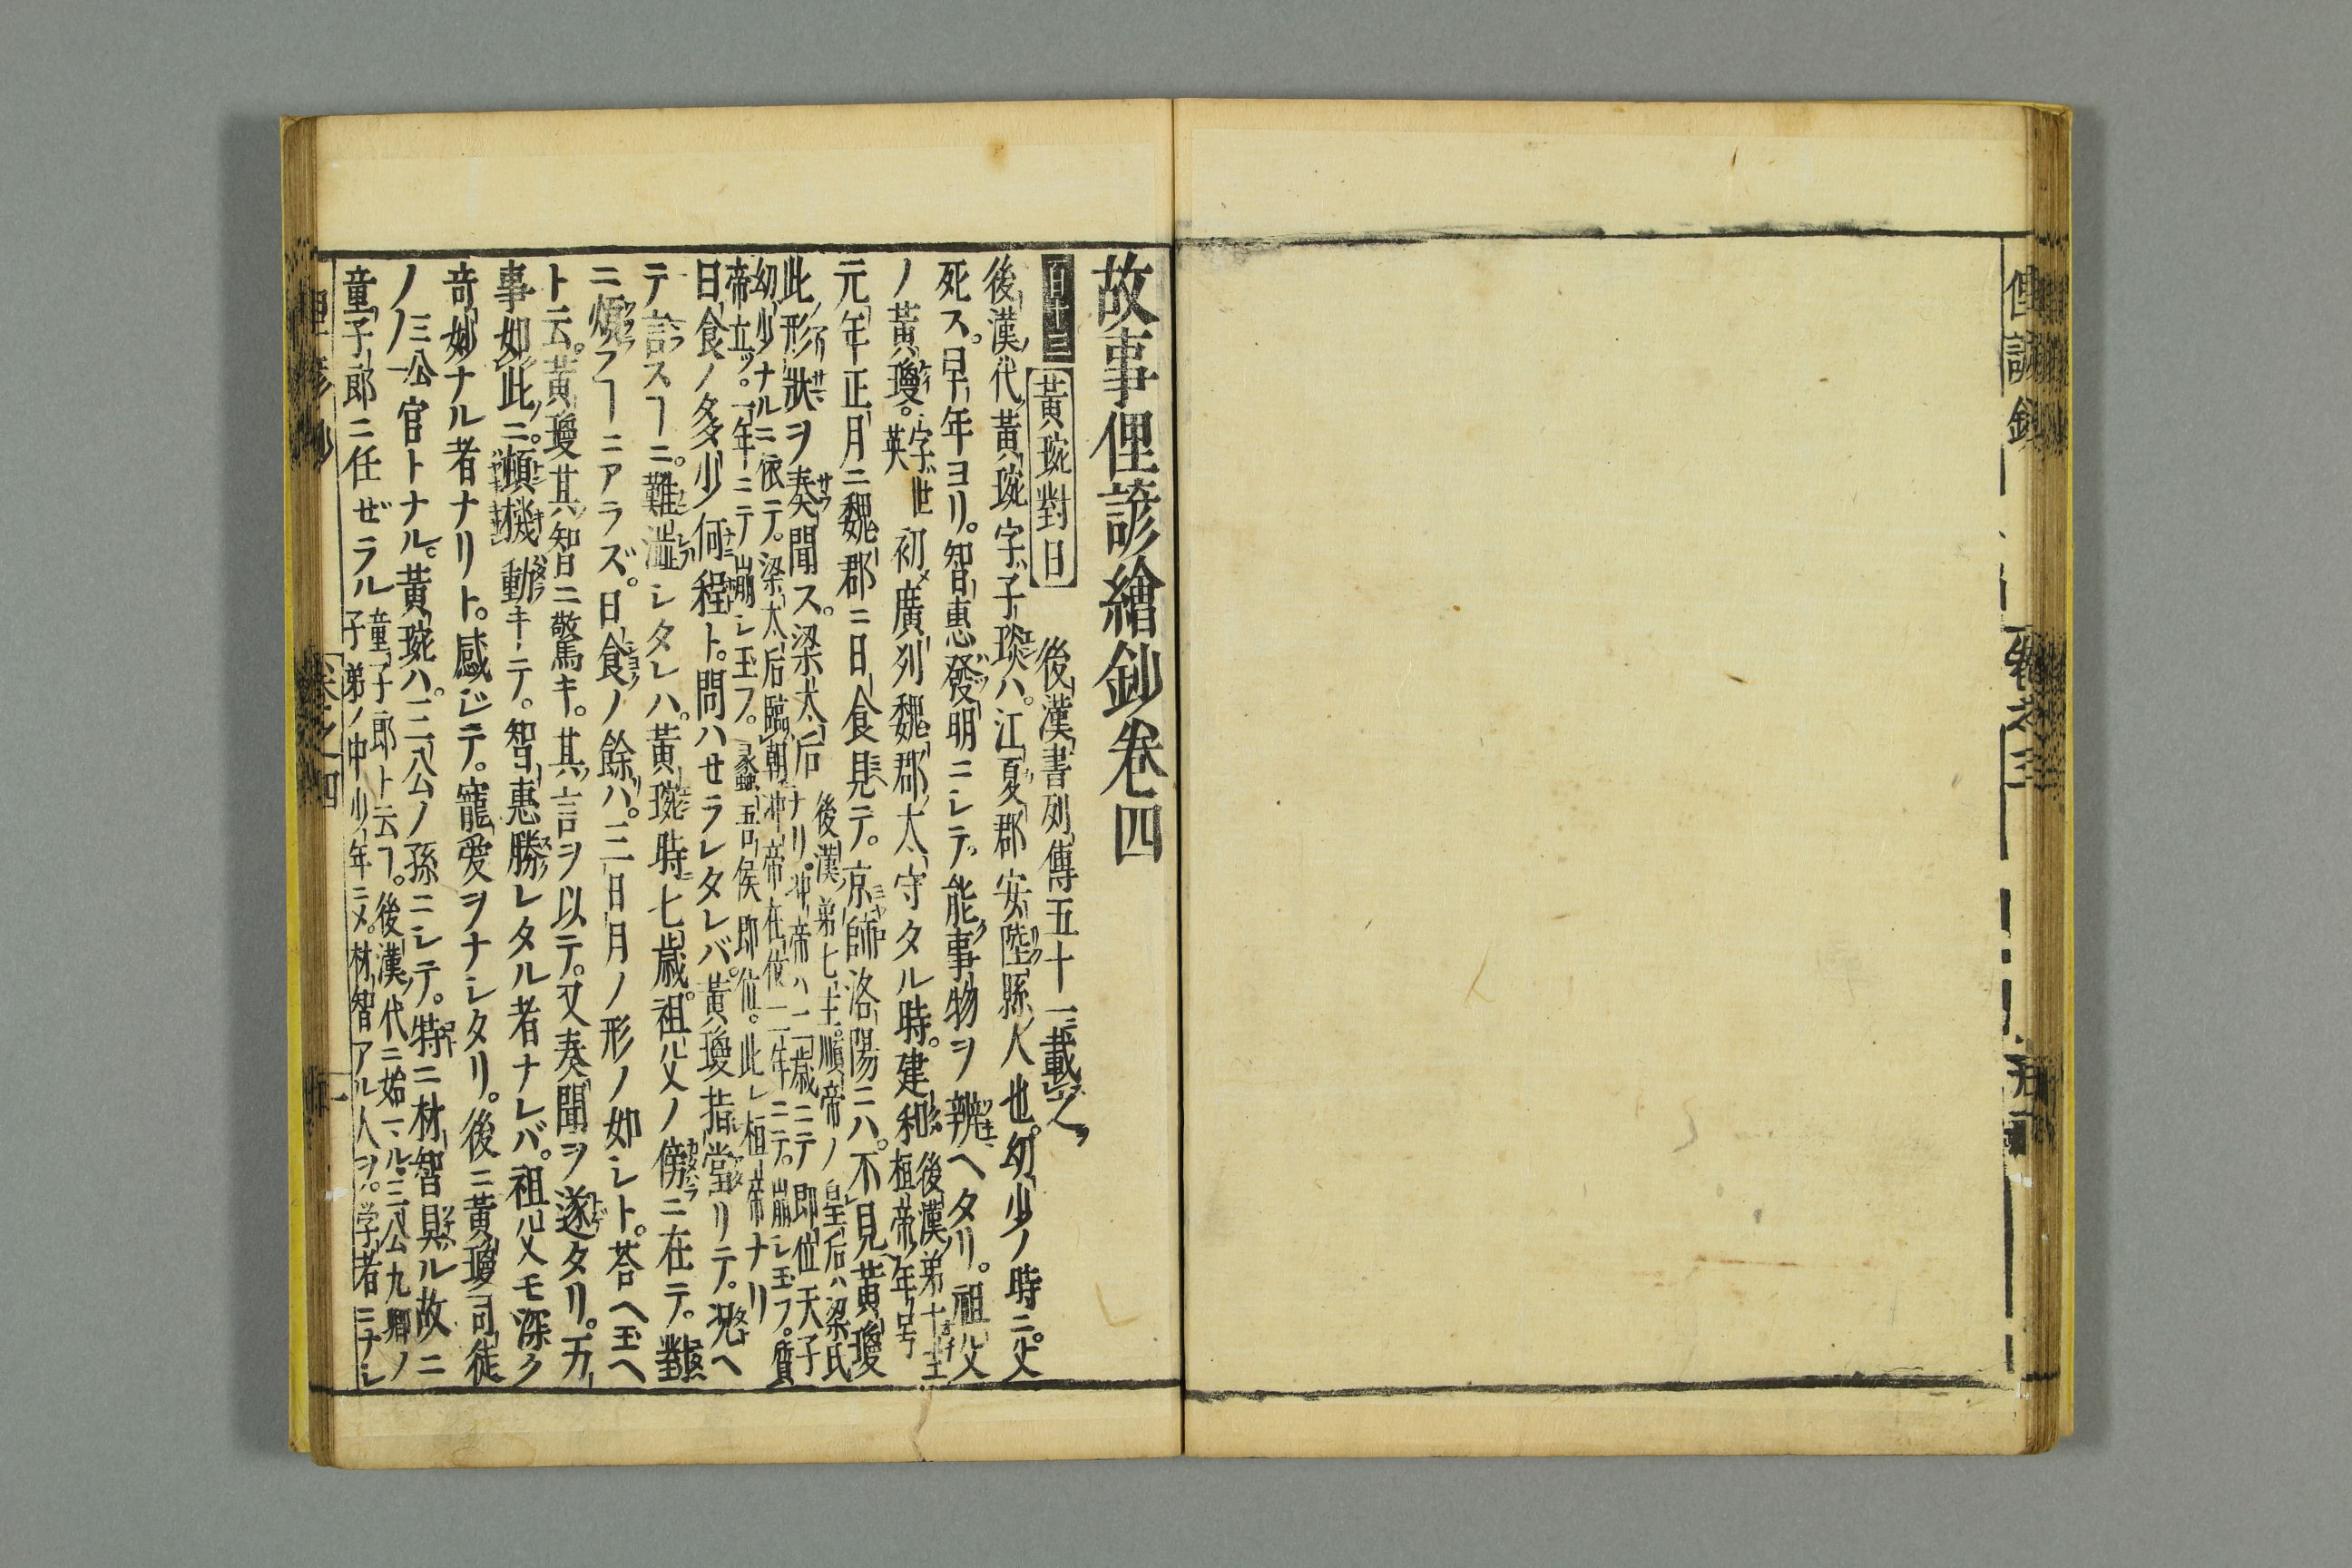 俚諺鈔
卷之三
故事俚諺繪鈔卷四
百十三 黃琬對日 後漢書列傳五十一ニ載之
後漢ノ代黃琬字ハ子琰ハ。江夏郡安陸縣ノ人也。幼少ノ時ニ。父
死ス。早年ヨリ。智惠發明ニシテ。能事物ヲ辨ヘタリ。祖父
ノ黃瓊。字世英 初メ廣列魏郡ノ太守タル時。建和 後漢第十主桓帝ノ年号
元年正月ニ魏郡ニ日食見テ。京師洛陽ニハ。不見黃瓊
此ノ形狀ヲ奏聞ス。梁太后 後漢第七主。順帝ノ皇后ハ梁氏ナリ。冲帝ハ二歳ニテ即位天子
幼少ナルニ依テ。梁太后臨朝冲帝在位一年ニテ。崩シ玉フ。質帝立ツ。一年ニテ崩シ玉フ。蠡吾侯即位。此レ桓帝ナリ
日食ノ多少何程ト。問ハせラレタレバ。黃瓊指當リテ。況ヘ
テ言ス㆒ニ。難澁シタレハ。黃琬時ニ七歳。祖父ノ傍ニ在テ。對
ニ煩フ㆒ニアラズ。日食ノ餘ハ。三日月ノ形ノ如シト。荅ヘ玉ヘ
ト云。黃瓊其智ニ驚キ。其ノ言ヲ以テ。又奏聞ヲ遂タリ。万
事如此ノニ。頻機動キテ。智惠勝レタル者ナレバ。祖父モ深ク
竒妙ナル者ナリト。感ジテ。寵愛ヲナシタリ。後ニ黃瓊司徒
ノ三公官トナル。黃琬ハ。三公ノ孫ニシテ。特ニ材智具ル故ニ
童子郎ニ任ぜラル 童子郎ト云フ。後漢ノ代ニ始ル三公九卿ノ子弟ノ中少年ニメ。材智アル人ヲ。学者ニナシ
俚諺鈔
卷之四
一